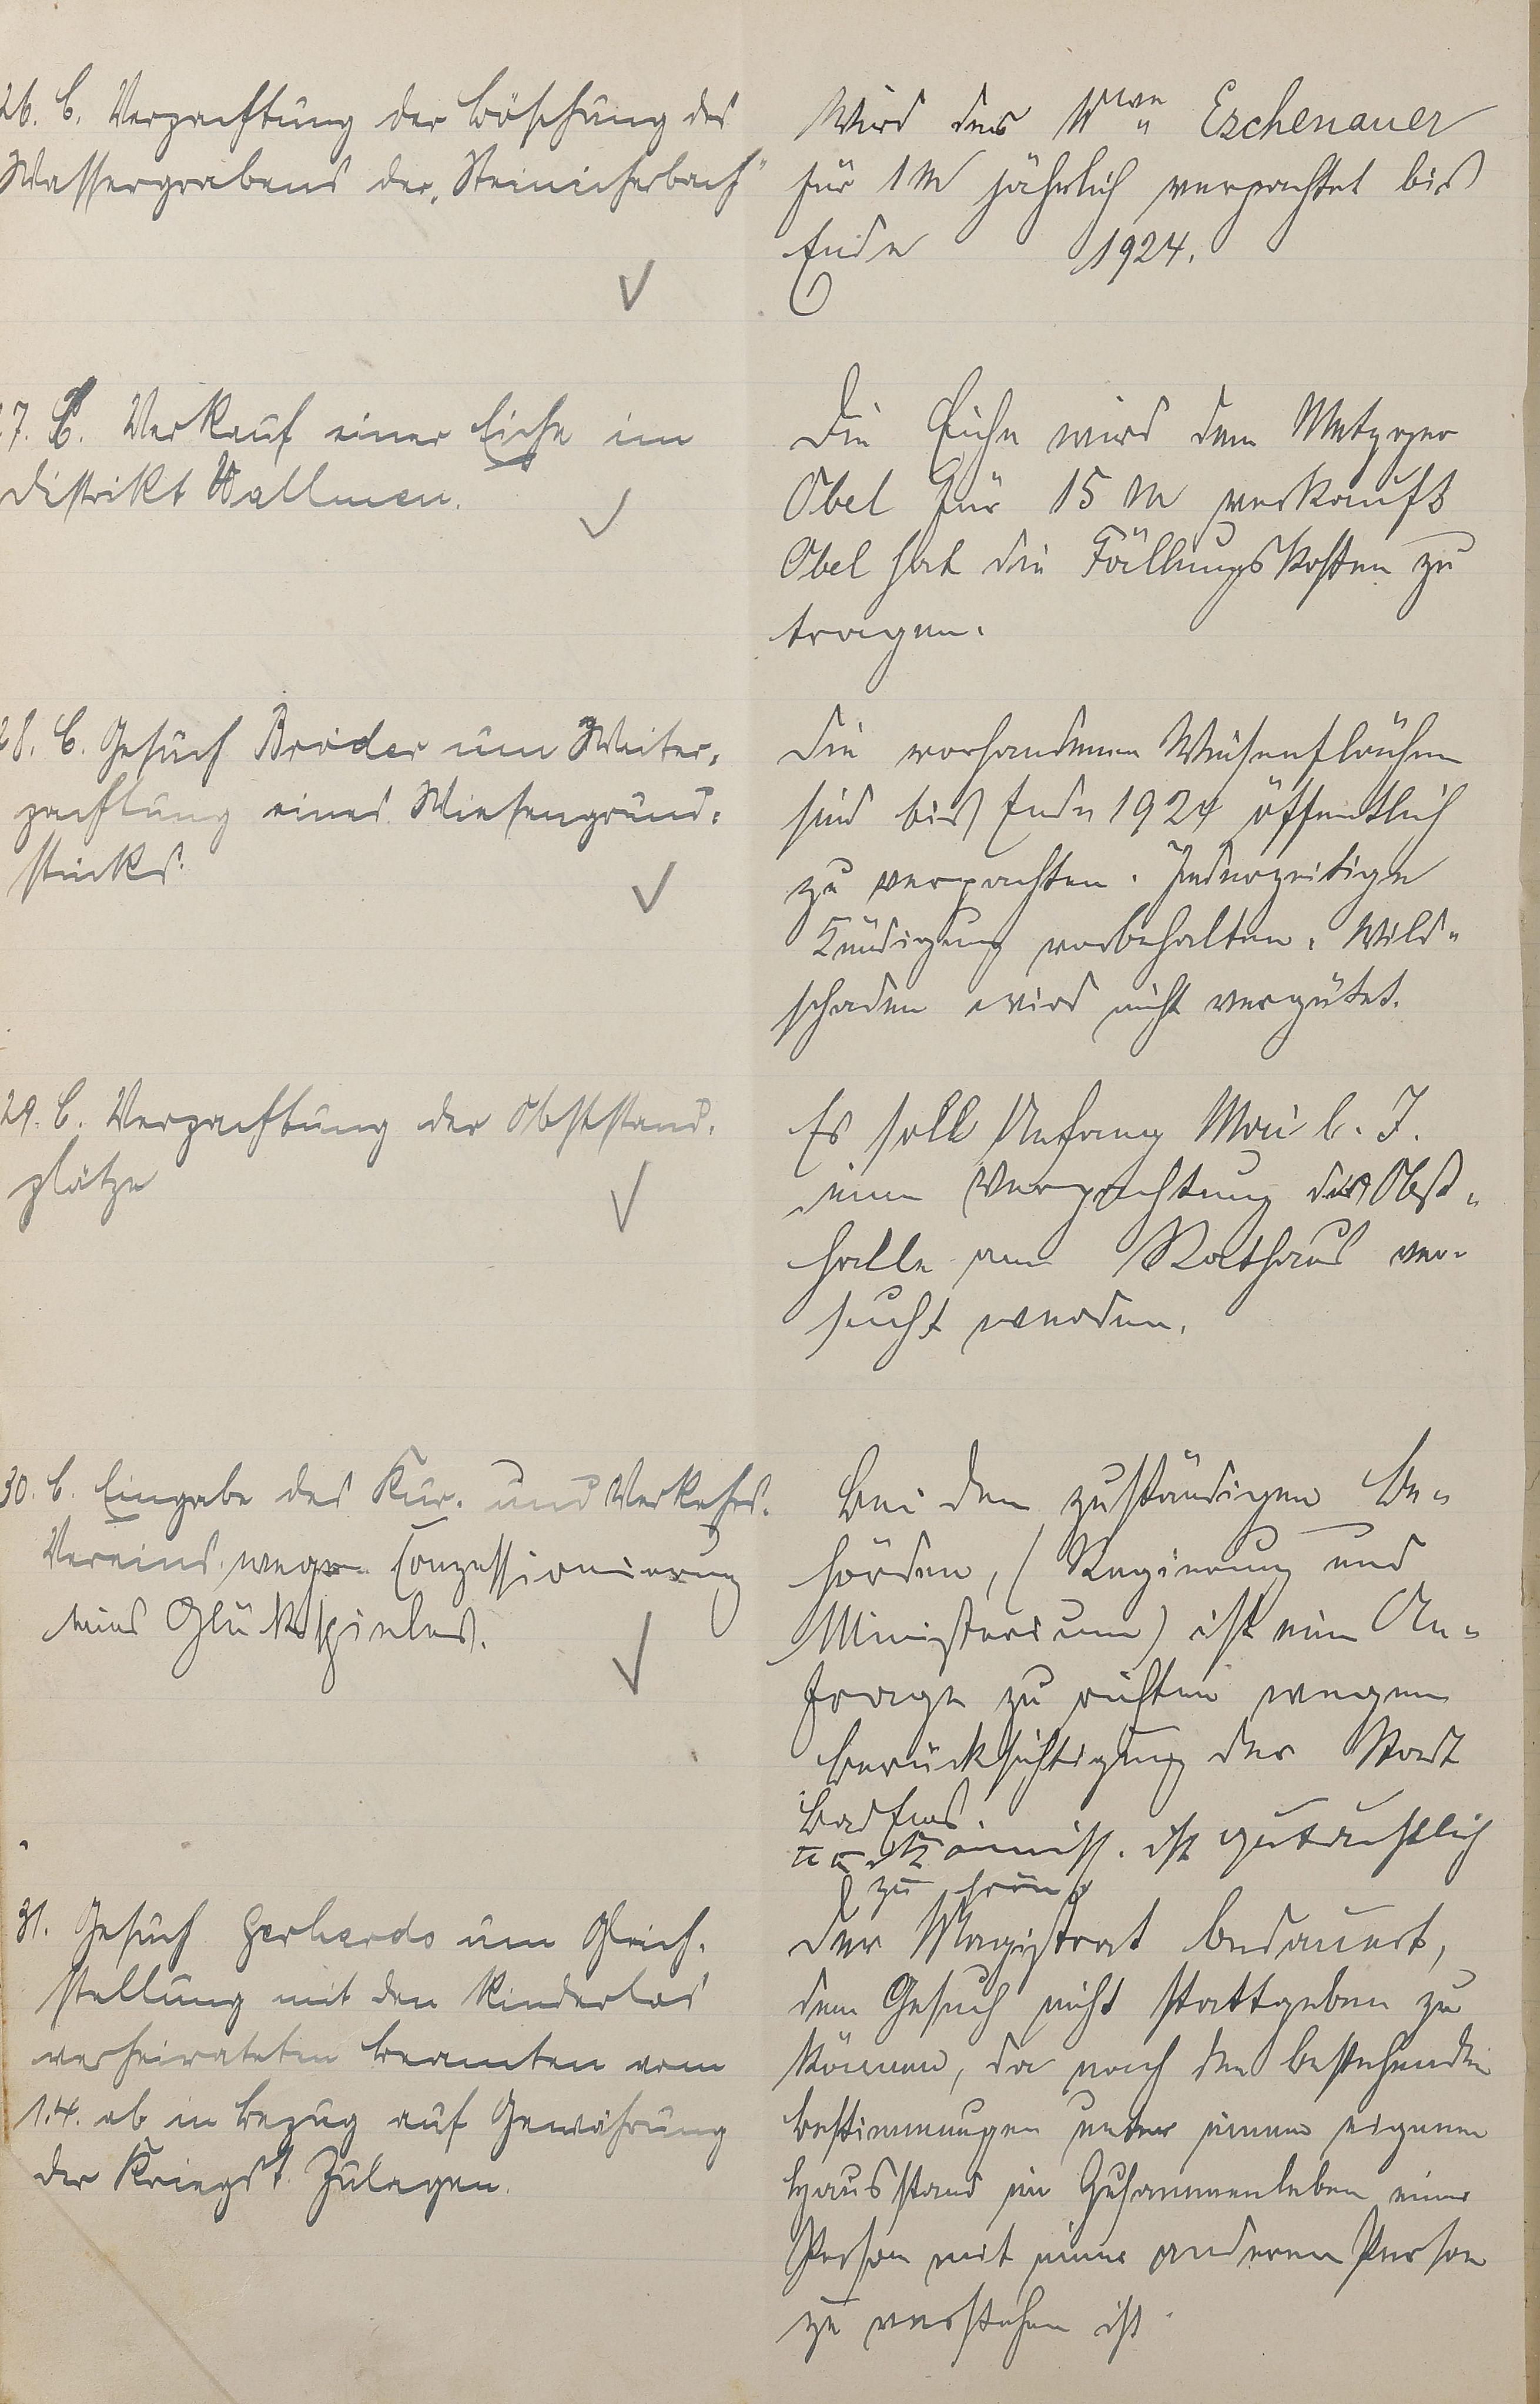 26. C. Verpachtung der Böschung des
Wassergrabens der „Steinicherbach"
Wird der Wwe „ Eschenauer
für 1 M jährlich verpachtet bis
Ende 1924.
27. C. Verkauf einer Eiche im
Distrikt Wallmen.
Die Eiche wird dem Metzger
Obel für 15 M verkauft
Obel hat die Fällungskosten zu
tragen.
28. C. Gesuch Broder um Weiter-
pachtung eines Wiesengrund-
stücks.
Die vorhandenen Wiesenflächen
sind bis Ende 1924 öffentlich
zu verpachten. Jederzeitige
Kündigung vorbehalten. Wild-
schaden wird nicht vergütet.
29. C. Verpachtung der Obststand-
plätze
Es soll Anfang Mai l. J.
eine Verpachtung der Obst-
halle am Rathaus ver-
sucht werden.
30. C. Eingabe des Kur- und Verkehrs-
Vereins wegen Conzessionierung
eines Glückspieles.
Bei den zuständigen Be-
hörden, (Regierung und
Ministerium) ist eine An-
frage zu richten wegen
Berücksichtigung der Stadt
Bad Ems.
Kommiss. ist gutachtlich
zu hören
31. Gesuch Gerhards um Gleich-
stellung mit den kinderlos
verheirateten Beamten vom
1.4. ab in Bezug auf Gewährung
der Kriegst. Zulagen.
Der Magistrat bedauert,
dem Gesuch nicht stattgeben zu
können, da nach den bestehenden
Bestimmungen unter einem eigenen
Hausstand ein Zusammenleben einer
Person mit einer anderen Person
zu verstehen ist.